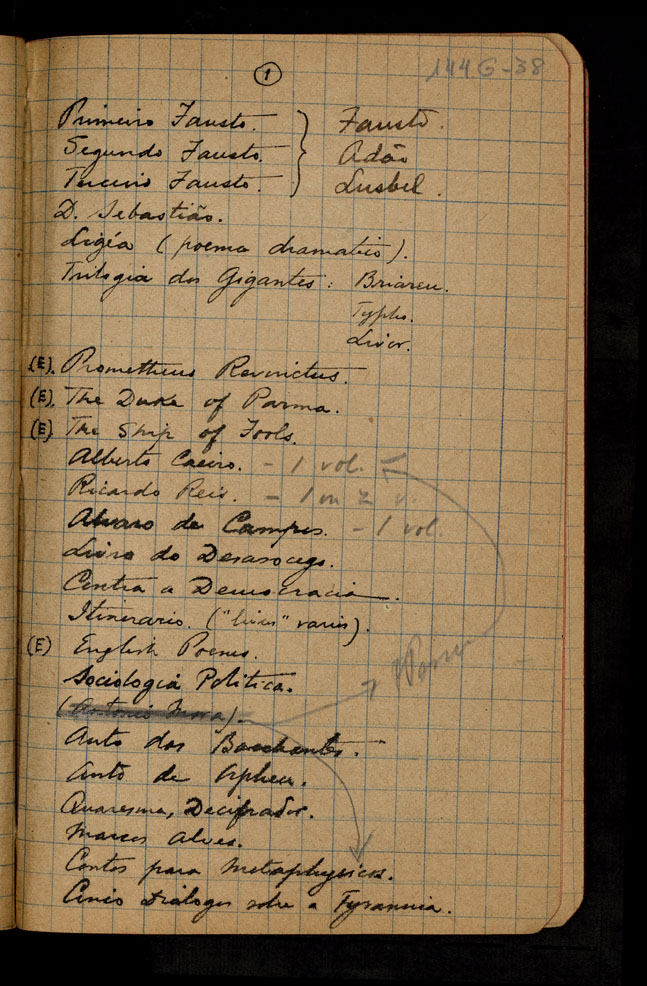 1
144G-38
Primeiro Fausto. } Fausto.
Segundo Fausto. Adão
Terceiro Fausto. Lusbel.
D. Sebastião.
Ligéa (poema dramatico).
Trilogia dos Gigantes: Briareu.
Typho.
Livor.
(E). Prometheus Revinctus.
(E). The Duke of Parma.
(E) The Ship of Fools.
Alberto Caeiro. - 1 vol.
Ricardo Reis. - 1 ou 2 v.
Alvaro de Campos. - 1 vol.
Livro do Desasocego.
Contra a Democracia.
Itinerario. ("livros" varios).
(E) English Poems.
Sociologia Politica.
(Antonio Mora).
Auto das Bacchantes.
Auto de Orpheu.
Quaresma, Decifrador.
Marcos Alves.
Contos para metaphysicos.
Cinco Dialogos sobre a Tyrannia.